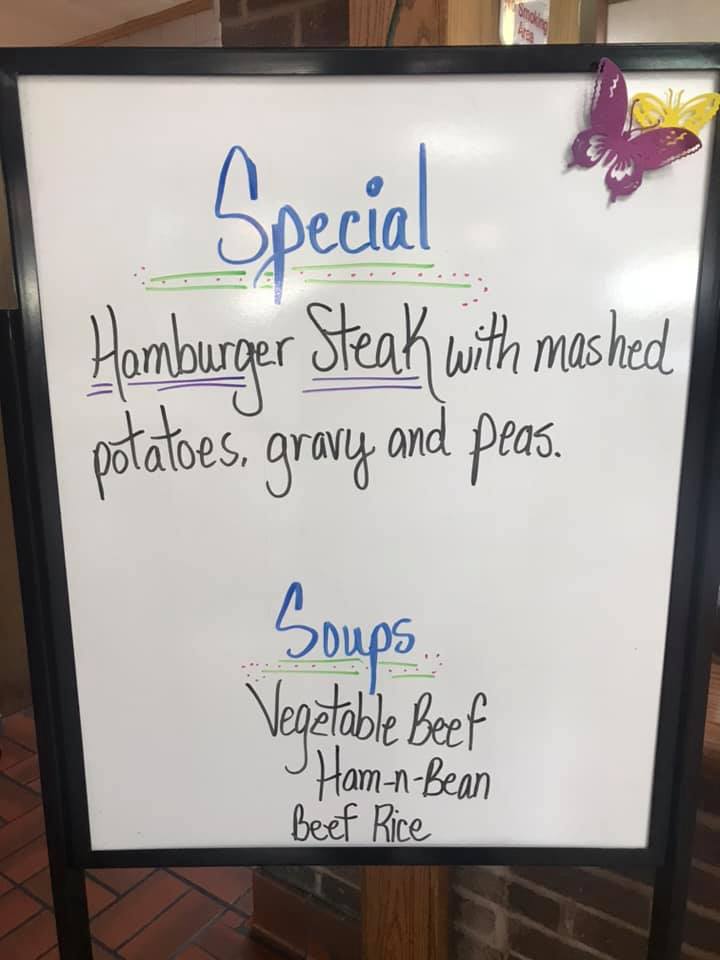 Smoking
Area
Special
Hamburger Steak with mashed
potatoes, gravy and peas.
Soups
Vegetable Beef
Ham-n-Bean
Beef Rice